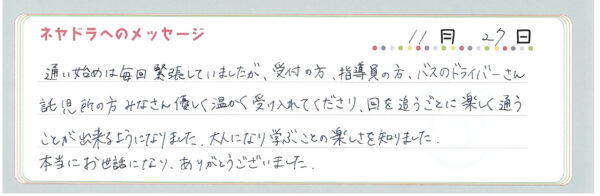 ネヤドラへのメッセージ 11月27日
通い始めは毎回緊張していましたが、受付の方、指導員の方、バスのドライバーさん
託児所の方みなさん優しく温かく受け入れてくださり、回を追うごとに楽しく通う
ことが出来るようになりました。大人になり学ぶことの楽しさを知りました。
本当にお世話になり、ありがとうございました。